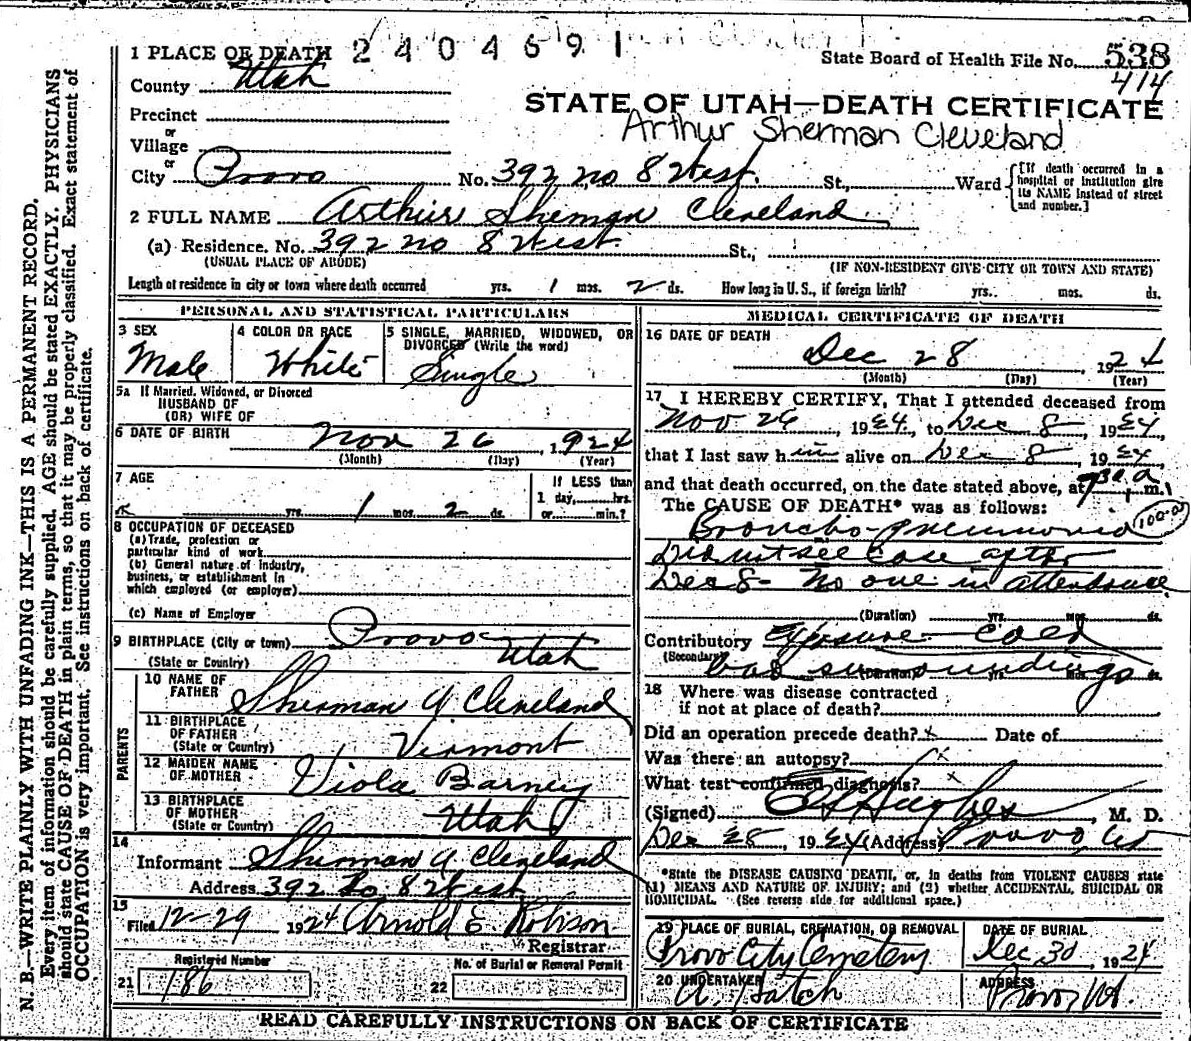 2404691
1 PLACE OF DEATH
State Board of Health File No. 538
414
County Utah
STATE OF UTAH—DEATH CERTIFICATE
Arthur Sherman Cleveland
Precinct
or
Village
or
City Provo No. 392 no 8 West. St., Ward
[If death occurred in a hospital or institution give its NAME instead of street and number.]
2 FULL NAME Arthur Sherman Cleveland
(a) Residence. No. 392 no 8 West. St.,
(USUAL PLACE OF ABODE) (IF NON-RESIDENT GIVE CITY OR TOWN AND STATE)
Length of residence in city or town where death occurred yrs. 1 mos. 2 ds. How long in U. S., if foreign birth? yrs. mos. ds.
PERSONAL AND STATISTICAL PARTICULARS
3 SEX
Male
4 COLOR OR RACE
White
5 SINGLE, MARRIED, WIDOWED, OR DIVORCED (Write the word)
Single
5a If Married, Widowed, or Divorced
HUSBAND OF
(OR) WIFE OF
6 DATE OF BIRTH Nov 26, 1924
(Month) (Day) (Year)
7 AGE
yrs. 1 mos. 2 ds.
If LESS than
1 day, hrs.
or min.?
8 OCCUPATION OF DECEASED
(a) Trade, profession or
particular kind of work
(b) General nature of industry,
business, or establishment in
which employed (or employer)
(c) Name of Employer
9 BIRTHPLACE (City or town) Provo
(State or Country) Utah
PARENTS
10 NAME OF FATHER Sherman A Cleveland
11 BIRTHPLACE OF FATHER
(State or Country) Vermont
12 MAIDEN NAME OF MOTHER Viola Barney
13 BIRTHPLACE OF MOTHER
(State or Country) Utah
14
Informant Sherman A Cleveland
Address 392 No 8 West
15
Filed 12-29 1924 Arnold E Robison
Registrar
Registered Number
21 186
No. of Burial or Removal Permit
22
MEDICAL CERTIFICATE OF DEATH
16 DATE OF DEATH
Dec 28, 1924
(Month) (Day) (Year)
17 I HEREBY CERTIFY, That I attended deceased from
Nov 26, 1924, to Dec 8, 1924,
that I last saw h im alive on Dec 8, 1924,
and that death occurred, on the date stated above, at 730 a m.
The CAUSE OF DEATH* was as follows:
Broncho-pneumonia
Did not see case after
Dec 8- No one in attendance
(Duration) yrs. mos. ds.
Contributory Exposure - Cold
(Secondary) bad surroundings
(Duration) yrs. mos. ds.
18 Where was disease contracted
if not at place of death?
Did an operation precede death? x Date of
Was there an autopsy? x
What test confirmed diagnosis? x
(Signed) Hughes, M. D.
Dec 28, 1924 (Address) Provo, Ut
*State the DISEASE CAUSING DEATH, or, in deaths from VIOLENT CAUSES state
(1) MEANS AND NATURE OF INJURY; and (2) whether ACCIDENTAL, SUICIDAL OR
HOMICIDAL. (See reverse side for additional space.)
19 PLACE OF BURIAL, CREMATION, OR REMOVAL
Provo City Cemetery
DATE OF BURIAL
Dec, 30, 1924
20 UNDERTAKER
A. Hatch
ADDRESS
Provo, Ut.
READ CAREFULLY INSTRUCTIONS ON BACK OF CERTIFICATE
N. B.—WRITE PLAINLY WITH UNFADING INK—THIS IS A PERMANENT RECORD.
Every item of information should be carefully supplied. AGE should be stated EXACTLY. PHYSICIANS
should state CAUSE OF DEATH in plain terms, so that it may be properly classified. Exact statement of
OCCUPATION is very important. See instructions on back of certificate.